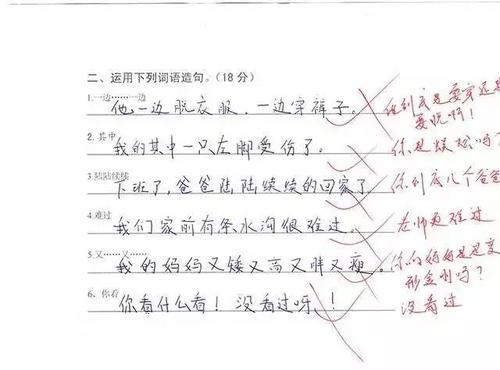 二、运用下列词语造句。(18分)
1.一边……一边
他一边脱衣服，一边穿裤子。
他到底是要穿还是
要脱啊！
2.其中
我的其中一只左脚受伤了。
你是蜈蚣吗？
3.陆陆续续
下班了，爸爸陆陆续续的回家了
你到底几个爸爸
4.难过
我们家前有条水沟很难过。
老师更难过
5.又……又……
我的妈妈又矮又高又胖又瘦。
你的妈妈是变
形金刚吗？
6．你看
你看什么看！没看过呀！
没看过